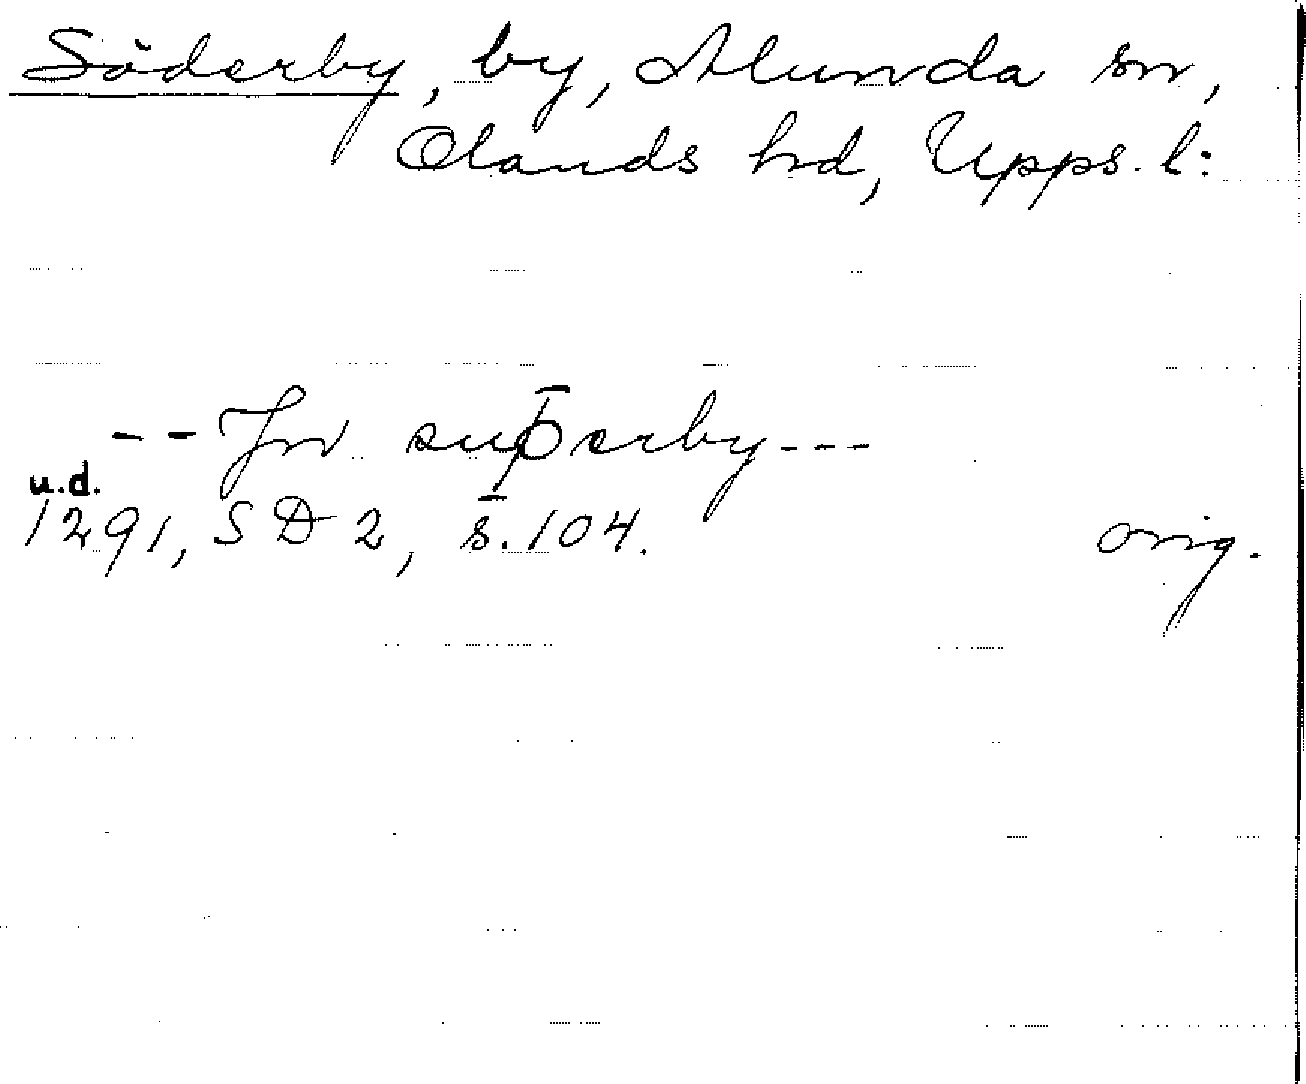 Söderby, by, Alunda sn,
Olands hd, Upps. l:
-- Jn suþerby ---
u.d.
1291, SD 2, s. 104. orig.